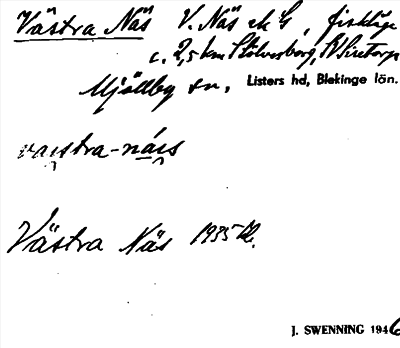 Västra Näs V. Näs ek G, fiskläge
c. 2,5 km Sölvesborg, SV Siretorp
Mjällby sn, Listers hd, Blekinge län.
vaistra-näss
Västra Näs 1935
J. SWENNING 1946